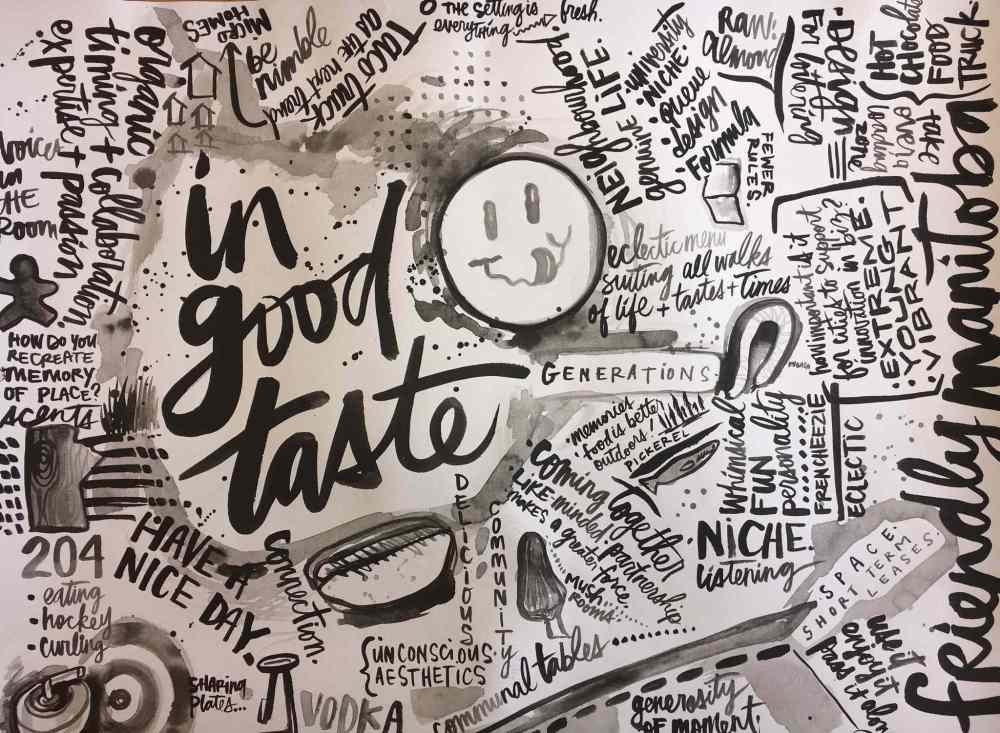 in
good
taste
THE SETTING IS
everything
fresh.
MICRO
HOMES
be
nimble
on the next food
Taco
truck
organic
timing + collaboration.
expertide + passion
IN
THE
ROOM
HOW DO YOU
RECREATE
MEMORY
OF PLACE?
scents
204
• eating
• hockey
• curling
HAVE A
NICE DAY.
connection.
SHARING
plates...
VODKA
{UNCONSCIOUS
AESTHETICS
DELICIOUS
COMMUNITY
communal tables
generosity
OF MOMENT
NEIGHBOURHOOD.
genuine LIFE.
university
NICHE.
queue
design
Formula
FEWER
RULES
RAW
almond
HOT
CHOCOLATE
FOOD
TRUCK
take
over
eclectic menu
suiting all walks
of life + tastes + times
GENERATIONS.
how important is it
for cities to support
innovation in biz?
EXTREME.
YOUNG
VIBRANT
memories
food is better
outdoors!
PICKEREL
coming together
LIKE minded partnership
MAKES a greater force...
MUSH
ROOMS
Whimsical
FUN
personality
FRENCHEEZIE
ECLECTIC
NICHE.
listening
SPACE
SHORT TERM
LEASES.
enjoy it
pass it along
friendly manitoba